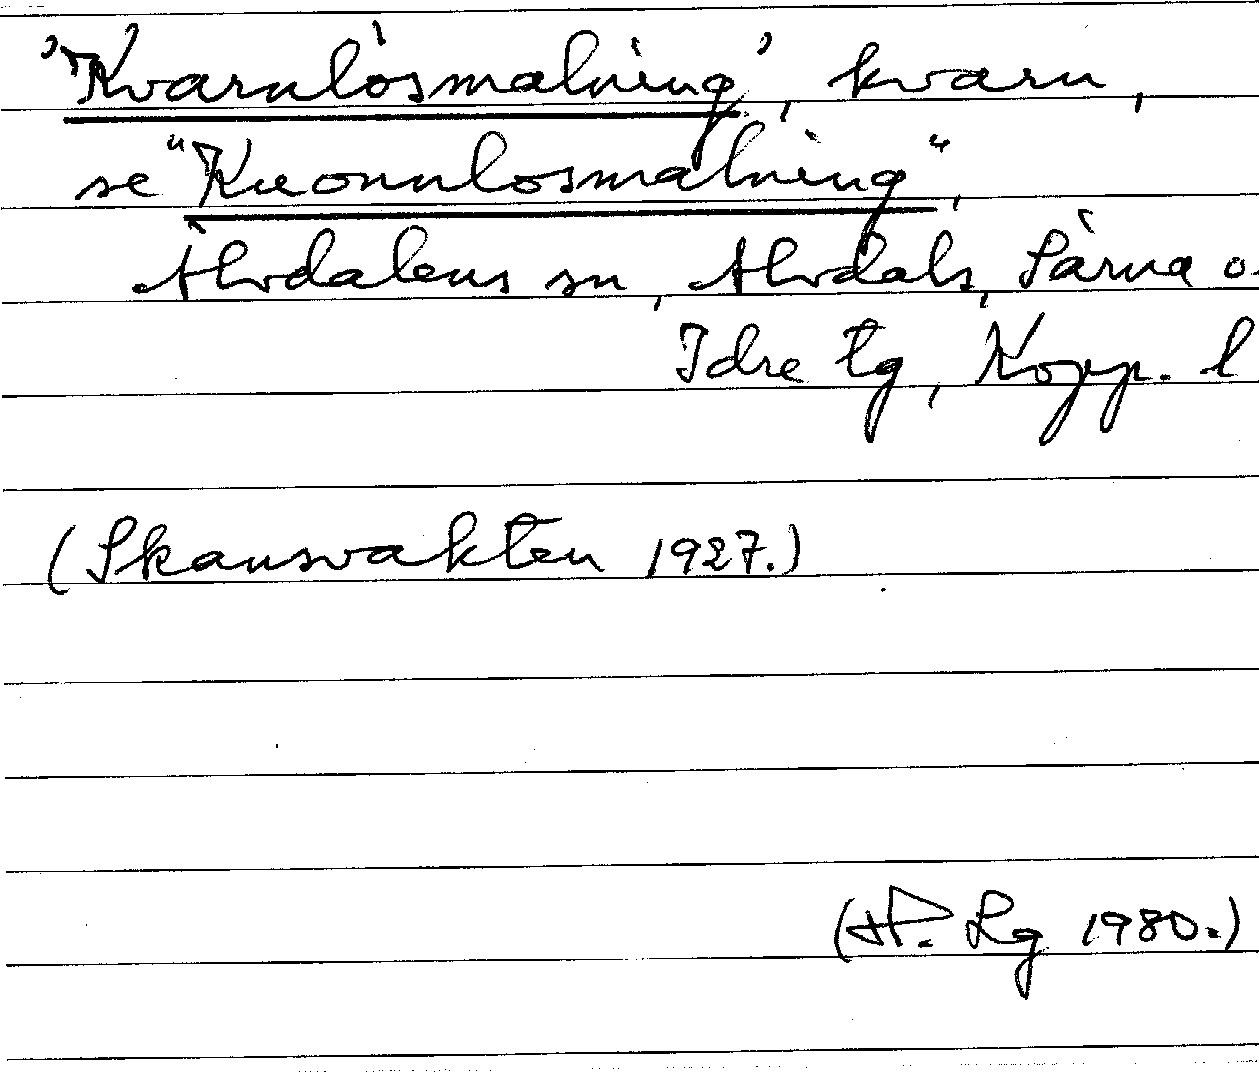 'Kvarnlösmalning', kvarn,
se "Kuonnlosmalning",
Älvdalens sn, Älvdals, Särna o
Idre tg, Kopp. l
(Skansvakten 1927.)
(H. Lg 1980.)